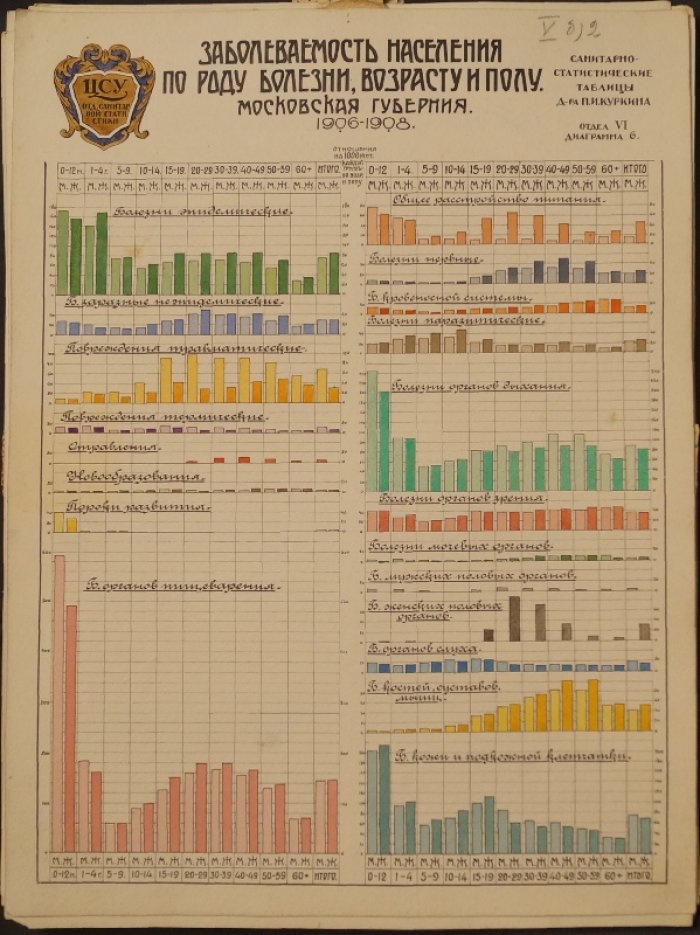 V 8,2
ЗАБОЛЕВАЕМОСТЬ НАСЕЛЕНИЯ
ПО РОДУ БОЛЕЗНИ, ВОЗРАСТУ И ПОЛУ.
МОСКОВСКАЯ ГУБЕРНИЯ.
1906-1908.
Ц.С.У.
ОТД. САНИТАР
НОЙ СТАТИ
СТИКИ
САНИТАРНО-
СТАТИСТИЧЕСКИЕ
ТАБЛИЦЫ
Д-РА П.И.КУРКИНА
ОТДЕЛ VI
ДИАГРАММА 6.
ОТНОШЕНИЯ
НА 1000 НАС.
КАЖДОЙ
ГРУППЫ
ПО ВОЗР.
И ПОЛУ
0-12 м. 1-4 г. 5-9. 10-14 15-19 20-29 30-39 40-49 50-59 60+ ИТОГО
М. Ж. М. Ж. М. Ж. М. Ж. М. Ж. М. Ж. М. Ж. М. Ж. М. Ж. М. Ж. М. Ж.
Болезни эпидемические.
Б. заразные неэпидемические.
Повреждения травматические.
Повреждения термические.
Отравления.
Новообразования.
Пороки развития.
Б. органов пищеварения.
М. Ж. М. Ж. М. Ж. М. Ж. М. Ж. М. Ж. М. Ж. М. Ж. М. Ж. М. Ж. М. Ж.
0-12 м. 1-4 г. 5-9. 10-14 15-19 20-29 30-39 40-49 50-59 60+ ИТОГО.
0-12 1-4 5-9 10-14 15-19 20-29 30-39 40-49 50-59 60+ ИТОГО
М. Ж. М. Ж. М. Ж. М. Ж. М. Ж. М. Ж. М. Ж. М. Ж. М. Ж. М. Ж. М. Ж.
Общее расстройство питания.
Болезни нервные.
Б. кровеносной системы.
Болезни паразитические.
Болезни органов дыхания.
Болезни органов зрения.
Болезни мочевых органов.
Б. мужских половых органов.
Б. женских половых
органов.
Б. органов слуха.
Б. костей, суставов,
мышц.
Б. кожи и подкожной клетчатки.
М. Ж. М. Ж. М. Ж. М. Ж. М. Ж. М. Ж. М. Ж. М. Ж. М. Ж. М. Ж. М. Ж.
0-12 1-4 5-9 10-14 15-19 20-29 30-39 40-49 50-59. 60+ ИТОГО.